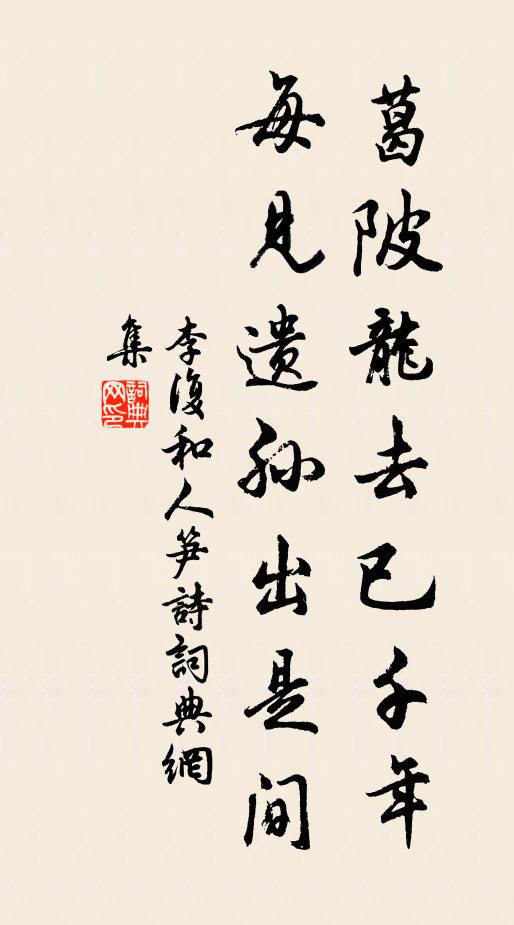 葛陂龍去已千年
每見遺孫出是間
李復和人笋詩詞典網
集
詞典
网印